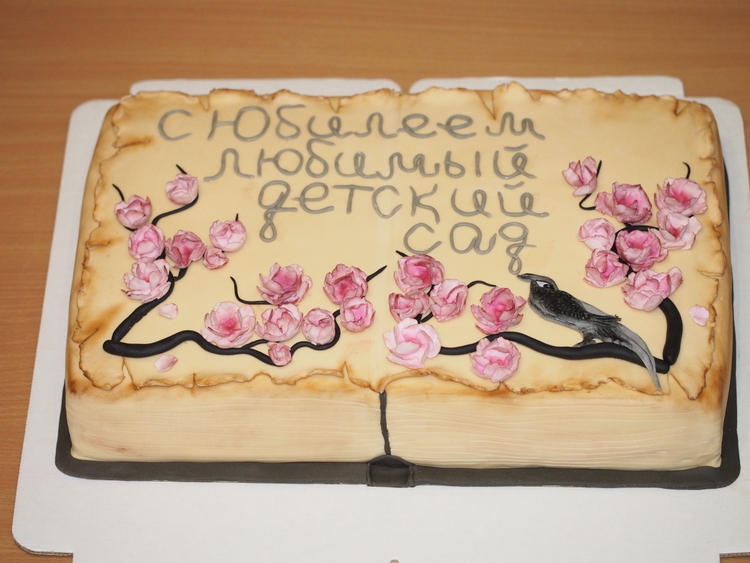 с юбилеем
любимый
детский
сад